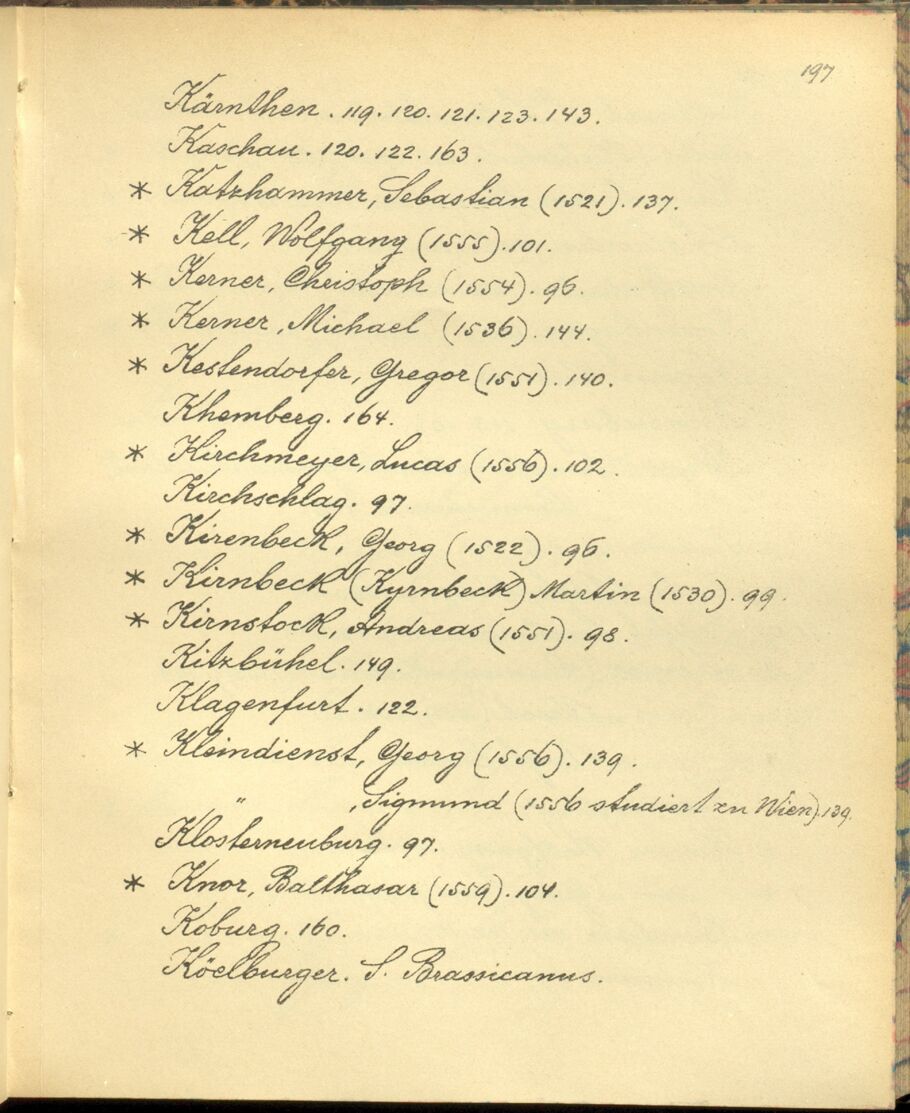 197
Kärnthen . 119. 120. 121. 123. 143.
Kaschau . 120. 122. 163.
* Katzhammer, Sebastian (1521). 137.
* Kell, Wolfgang (1555). 101.
* Kerner, Christoph (1554). 96.
* Kerner, Michael (1536). 144.
* Kestendorfer, Gregor (1551). 140.
Khemberg. 164.
* Kirchmeyer, Lucas (1556). 102.
Kirchschlag. 97.
* Kirenbeck, Georg (1522). 96.
* Kirnbeck (Kyrnbeck) Martin (1530). 99.
* Kirnstock, Andreas (1551). 98.
Kitzbühel. 149.
Klagenfurt. 122.
* Kleindienst, Georg (1556). 139.
" , Sigmund (1556 studiert zu Wien). 139.
Klosterneuburg. 97.
* Knor, Balthasar (1559). 104.
Koburg. 160.
Köelburger. S. Brassicanus.